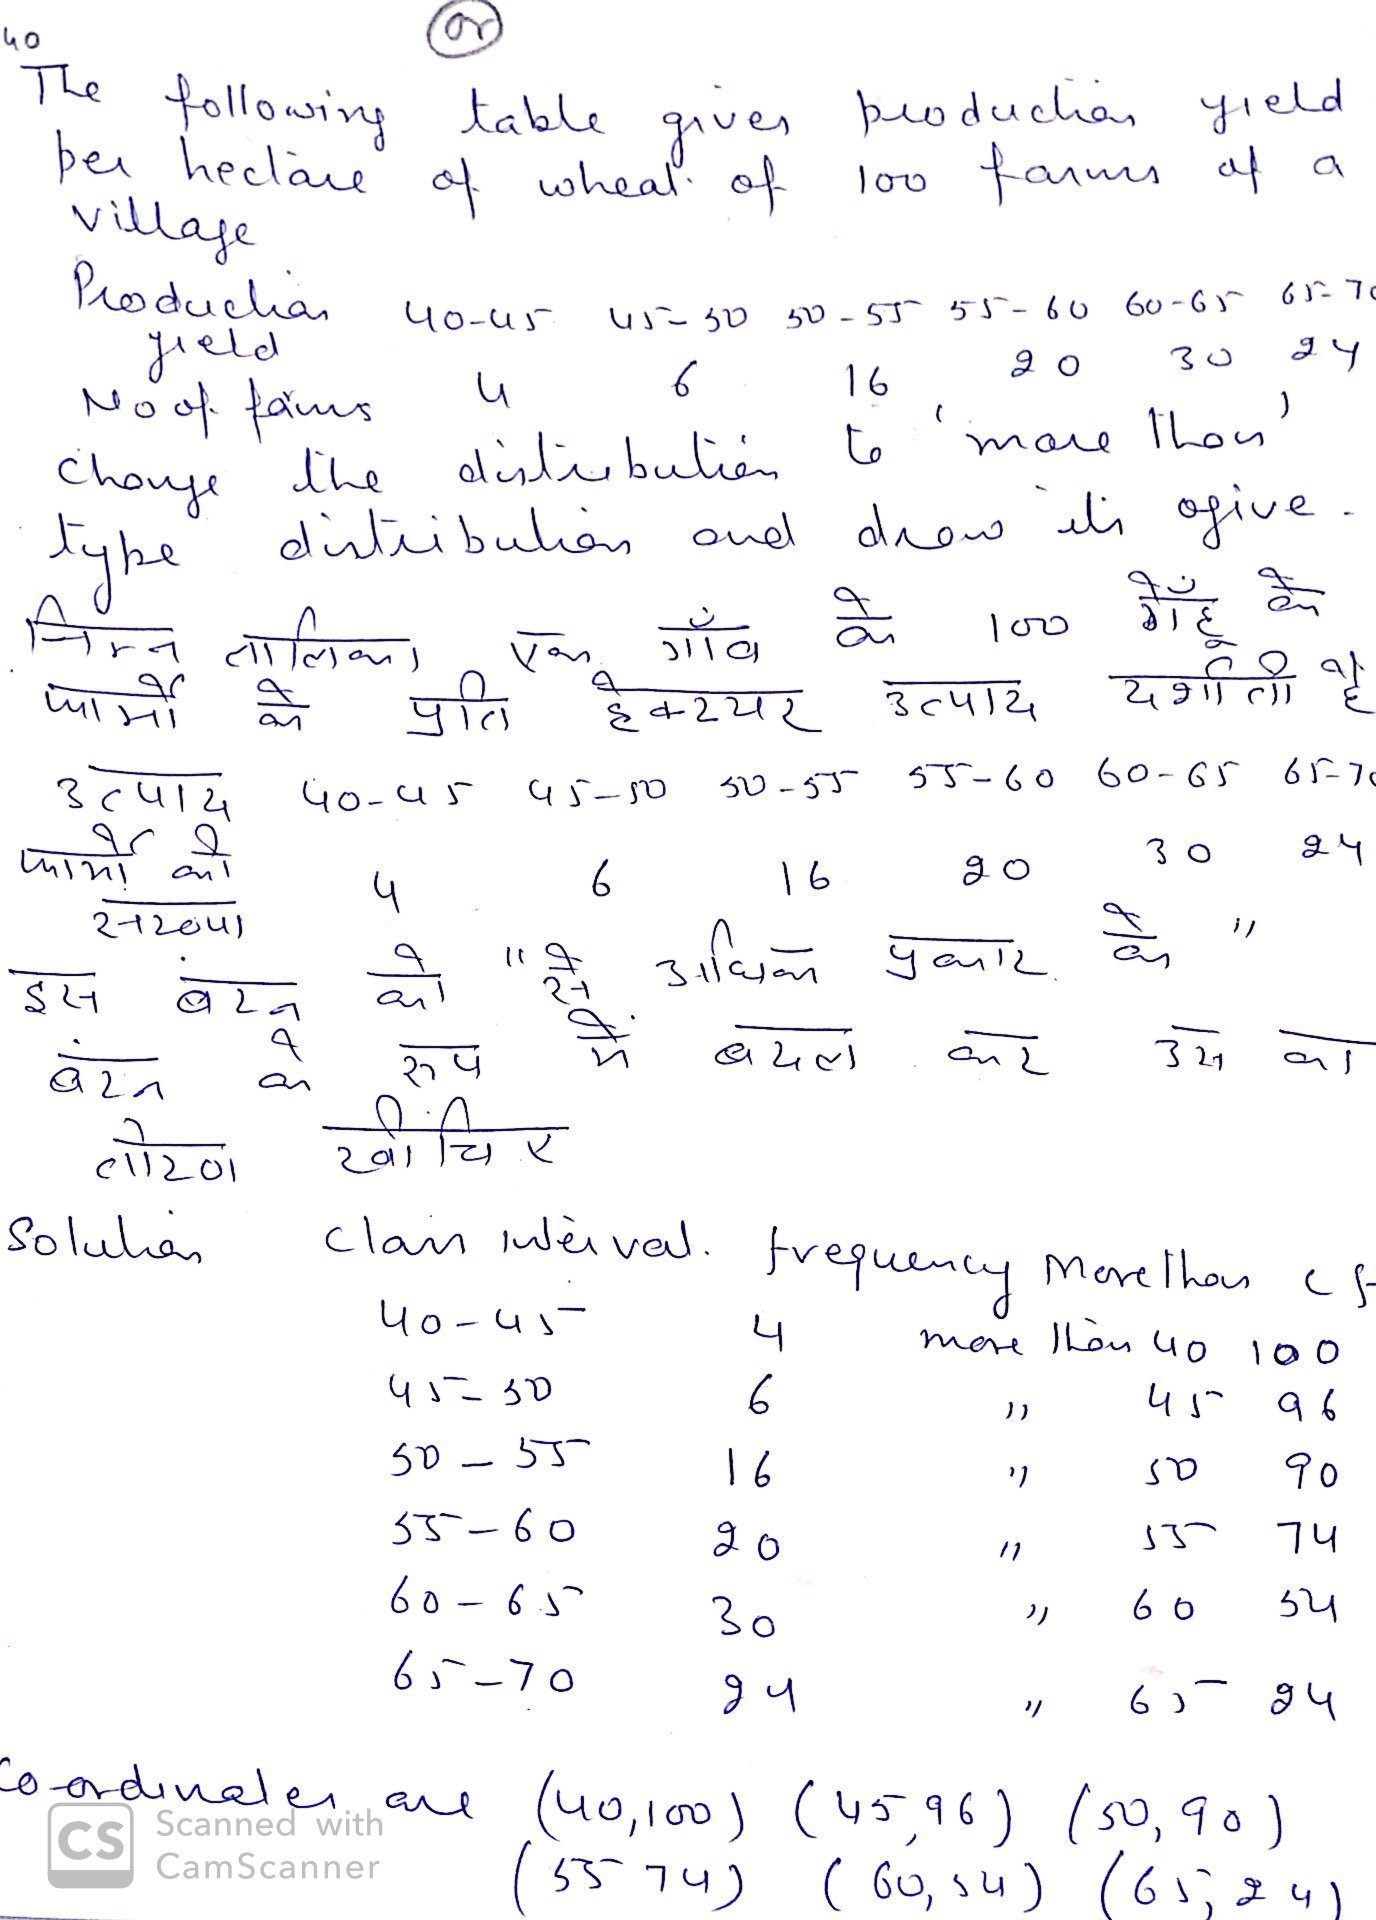 40
or
The following table gives production yield
per hectare of wheat of 100 farms of a
village
Production yield 40-45 45-50 50-55 55-60 60-65 65-70
No of farms 4 6 16 20 30 24
change the distribution to 'more than'
type distribution and draw its ogive.
निम्न तालिका, एक गाँव के 100 गेहूँ के
फार्मों के प्रति हेक्टयर उत्पाद दर्शाती है
उत्पाद 40-45 45-50 50-55 55-60 60-65 65-70
फार्मों की संख्या 4 6 16 20 30 24
इस बंटन को "से अधिक प्रकार के"
बंटन के रूप में बदल कर उस का
तोरण खींचिए
Solution Class interval. frequency More than cf
40-45 4 more than 40 100
45-50 6 " 45 96
50-55 16 " 50 90
55-60 20 " 55 74
60-65 30 " 60 54
65-70 24 " 65 24
Co-ordinates are (40,100) (45,96) (50,90)
(55 74) (60,54) (65,24)
CS Scanned with
CamScanner